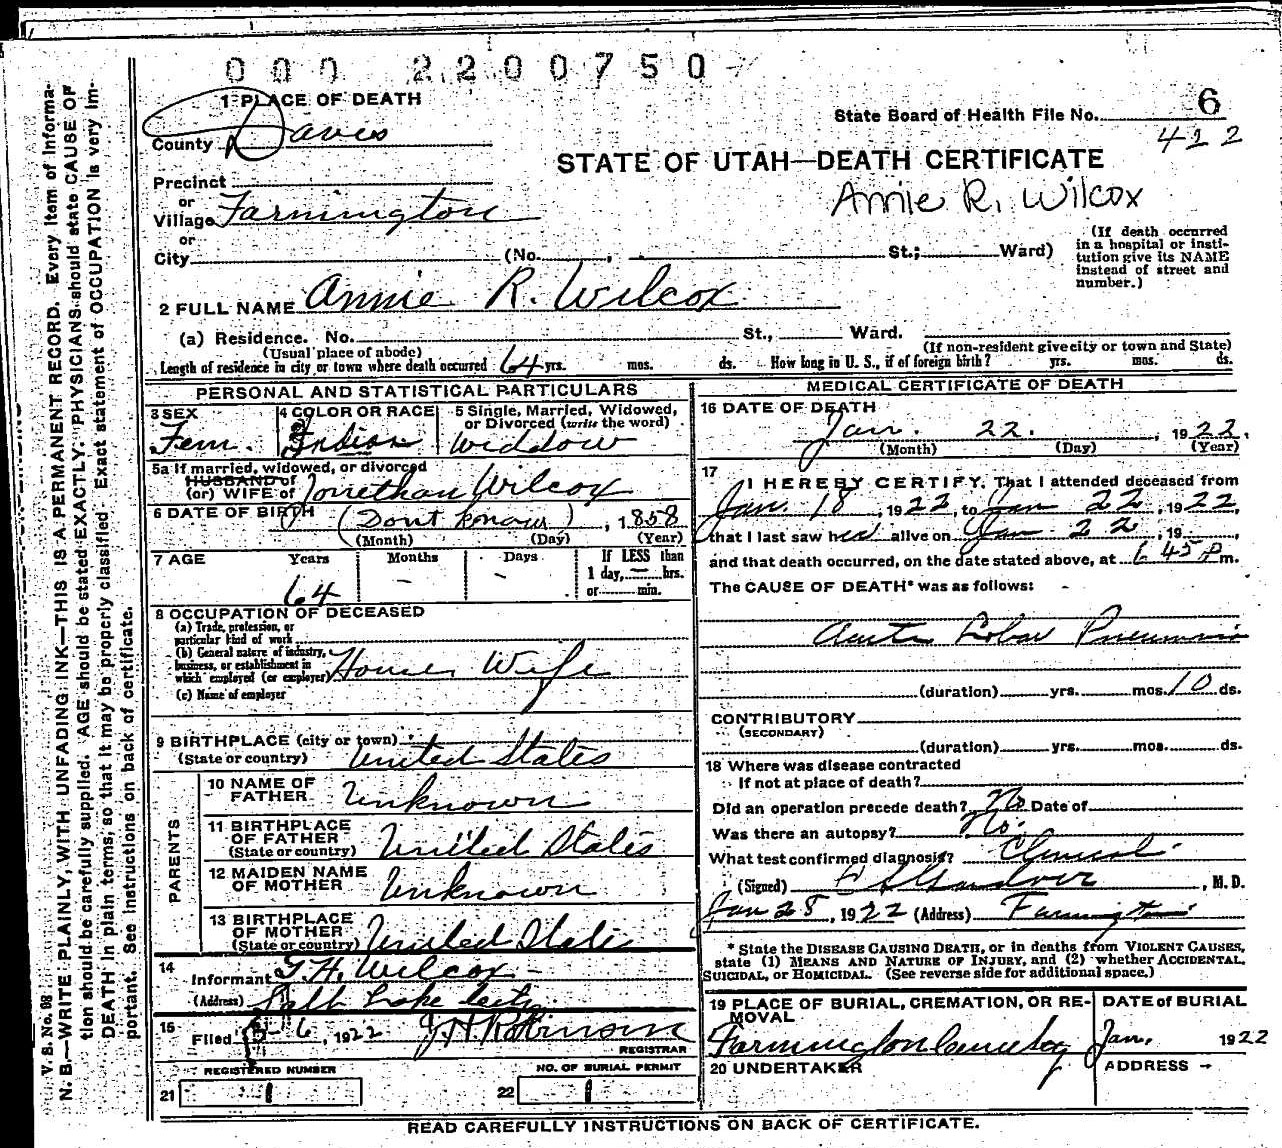 000 2200750
1 PLACE OF DEATH
County Daves
State Board of Health File No. 6
422
STATE OF UTAH—DEATH CERTIFICATE
Annie R. Wilcox
Precinct
or
Village Farmington
or
City (No. , St.; Ward)
(If death occurred in a hospital or insti-
tution give its NAME instead of street and number.)
2 FULL NAME Annie R. Wilcox
(a) Residence. No. St., Ward.
(Usual place of abode) (If non-resident give city or town and State)
Length of residence in city or town where death occurred 64 yrs. mos. ds. How long in U. S., if of foreign birth? yrs. mos. ds.
PERSONAL AND STATISTICAL PARTICULARS
3 SEX Fem.
4 COLOR OR RACE Indian
5 Single, Married, Widowed, or Divorced (write the word) Widdow
5a If married, widowed, or divorced
HUSBAND of
(or) WIFE of Jonethan Wilcox
6 DATE OF BIRTH (Dont know) , 1858
(Month) (Day) (Year)
7 AGE Years Months Days If LESS than
1 day, — hrs.
or min.
64 – –
8 OCCUPATION OF DECEASED
(a) Trade, profession, or
particular kind of work
(b) General nature of industry,
business, or establishment in
which employed (or employer) House Wife
(c) Name of employer
9 BIRTHPLACE (city or town)
(State or country) United States
PARENTS
10 NAME OF FATHER Unknown
11 BIRTHPLACE OF FATHER (State or country) United States
12 MAIDEN NAME OF MOTHER Unknown
13 BIRTHPLACE OF MOTHER (State or country) United States
14 Informant T. H. Wilcox
(Address) Salt Lake City
15 Filed 5-6, 1922 J H Robinson
REGISTRAR
REGISTERED NUMBER NO. OF BURIAL PERMIT
21 1 22 1
MEDICAL CERTIFICATE OF DEATH
16 DATE OF DEATH
Jan. 22. , 1922.
(Month) (Day) (Year)
17 I HEREBY CERTIFY, That I attended deceased from
Jan. 18, 1922, to Jan 22, 1922,
that I last saw her alive on Jan 22, 19 ,
and that death occurred, on the date stated above, at 6 45 P m.
The CAUSE OF DEATH* was as follows:
Acute Lobar Pneumonia
(duration) yrs. mos. 10 ds.
CONTRIBUTORY
(SECONDARY)
(duration) yrs. mos. ds.
18 Where was disease contracted
If not at place of death?
Did an operation precede death? No Date of
Was there an autopsy? No.
What test confirmed diagnosis? Clinical.
(Signed) , M. D.
Jan 28, 1922 (Address) Farmington
* State the DISEASE CAUSING DEATH, or in deaths from VIOLENT CAUSES,
state (1) MEANS AND NATURE OF INJURY, and (2) whether ACCIDENTAL,
SUICIDAL, or HOMICIDAL. (See reverse side for additional space.)
19 PLACE OF BURIAL, CREMATION, OR RE-
MOVAL
Farmington Cemetery
DATE of BURIAL
Jan. 1922
20 UNDERTAKER ADDRESS
READ CAREFULLY INSTRUCTIONS ON BACK OF CERTIFICATE.
V. S. No. 98
N. B.—WRITE PLAINLY, WITH UNFADING INK—THIS IS A PERMANENT RECORD. Every item of informa-
tion should be carefully supplied. AGE should be stated EXACTLY. PHYSICIANS should state CAUSE OF
DEATH in plain terms, so that it may be properly classified. Exact statement of OCCUPATION is very im-
portant. See instructions on back of certificate.